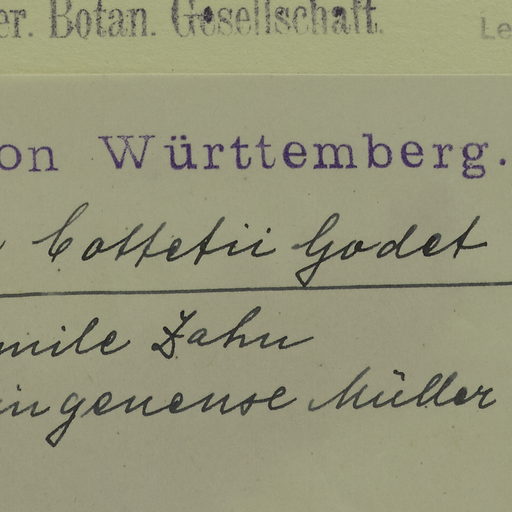 er. Botan. Gesellschaft.
Le
on Württemberg.
Cottetii Godet
mile Zahn
ingenense Müller